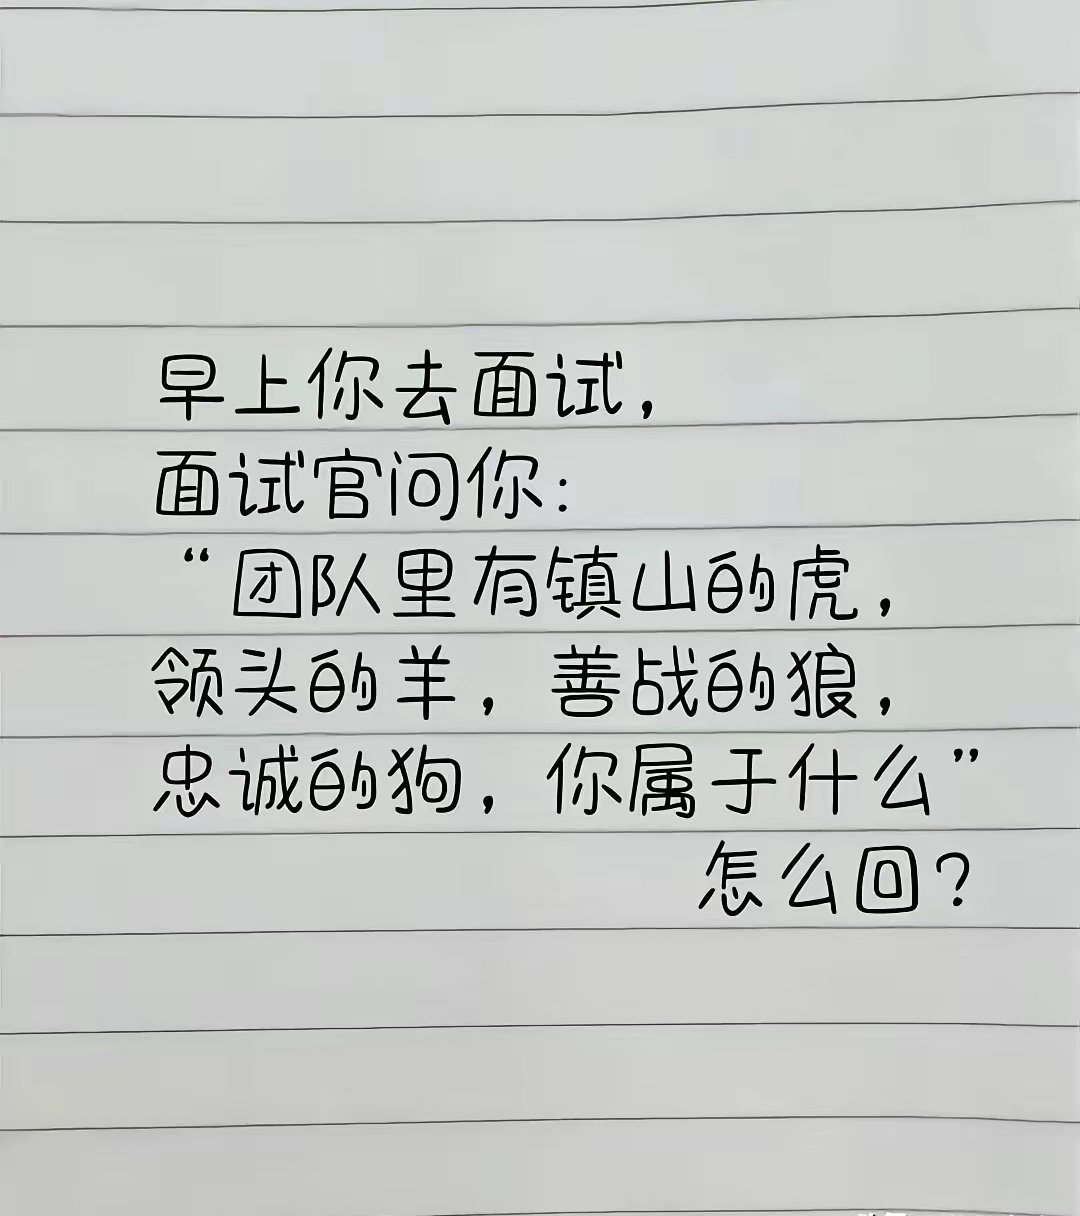 早上你去面试，
面试官问你：
“团队里有镇山的虎，
领头的羊，善战的狼，
忠诚的狗，你属于什么”
怎么回？